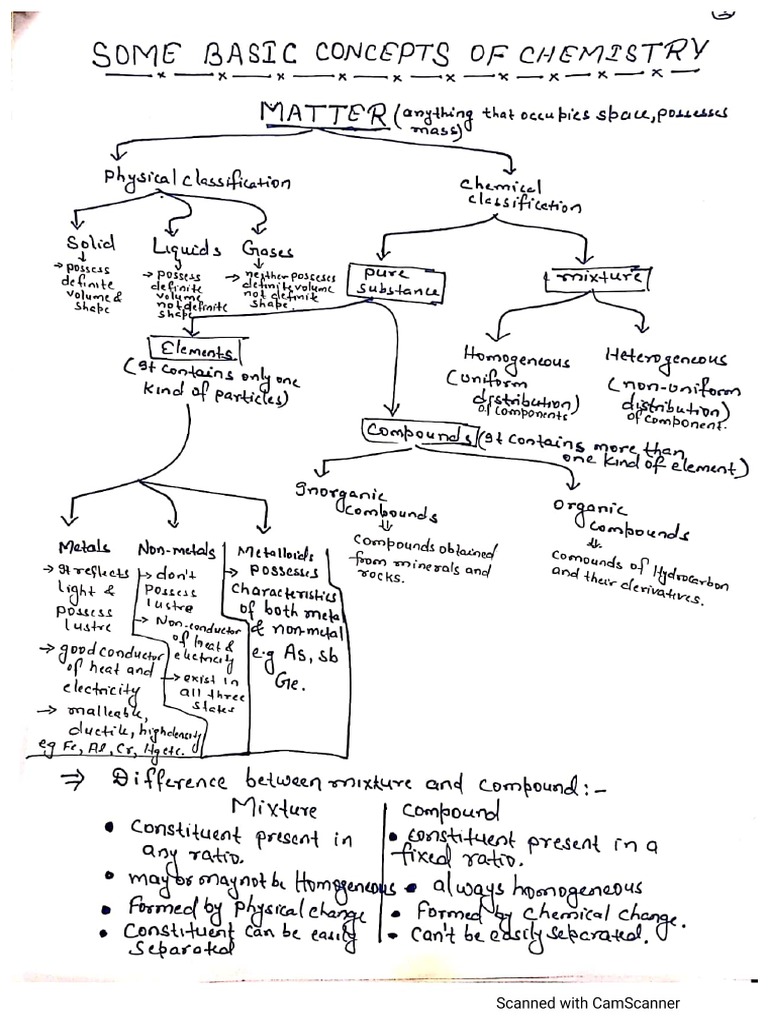 SOME BASIC CONCEPTS OF CHEMISTRY
MATTER (anything that occupies space, possesses
mass)
Physical classification
chemical
classification
Solid
→ possess
definite
volume &
shape
Liquids
→ possess
definite
volume
not definite
shape
Gases
→ neither posseses
definite volume
not definite
shape
pure
substance
mixture
Elements
(It contains only one
kind of particles)
Homogeneous
(uniform
distribution)
of components
Heterogeneous
(non-uniform
distribution)
of component.
Compounds (It contains more than
one kind of element)
Inorganic
compounds
⇓
Compounds obtained
from minerals and
rocks.
Organic
compounds
⇓
comounds of Hydrocarbon
and their derivatives.
Metals
→ It reflects
light &
possess
lustre
→ good conductor
of heat and
electricity
→ malleable,
ductile, high density
eg Fe, Al, Cr, Hg etc.
Non-metals
→ don't
possess
lustre
→ Non-conductor
of heat &
electricity
→ exist in
all three
states
Metalloids
→ possesses
characteristics
of both metal
& non-metal
e.g As, sb
Ge.
⇒ Difference between mixture and compound :-
Mixture
• Constituent present in
any ratio.
• may or may not be Homogeneous
• Formed by Physical change
• Constituent can be easily
separated
Compound
• constituent present in a
fixed ratio.
• always homogeneous
• Formed by Chemical change.
• Can't be easily separated.
Scanned with CamScanner